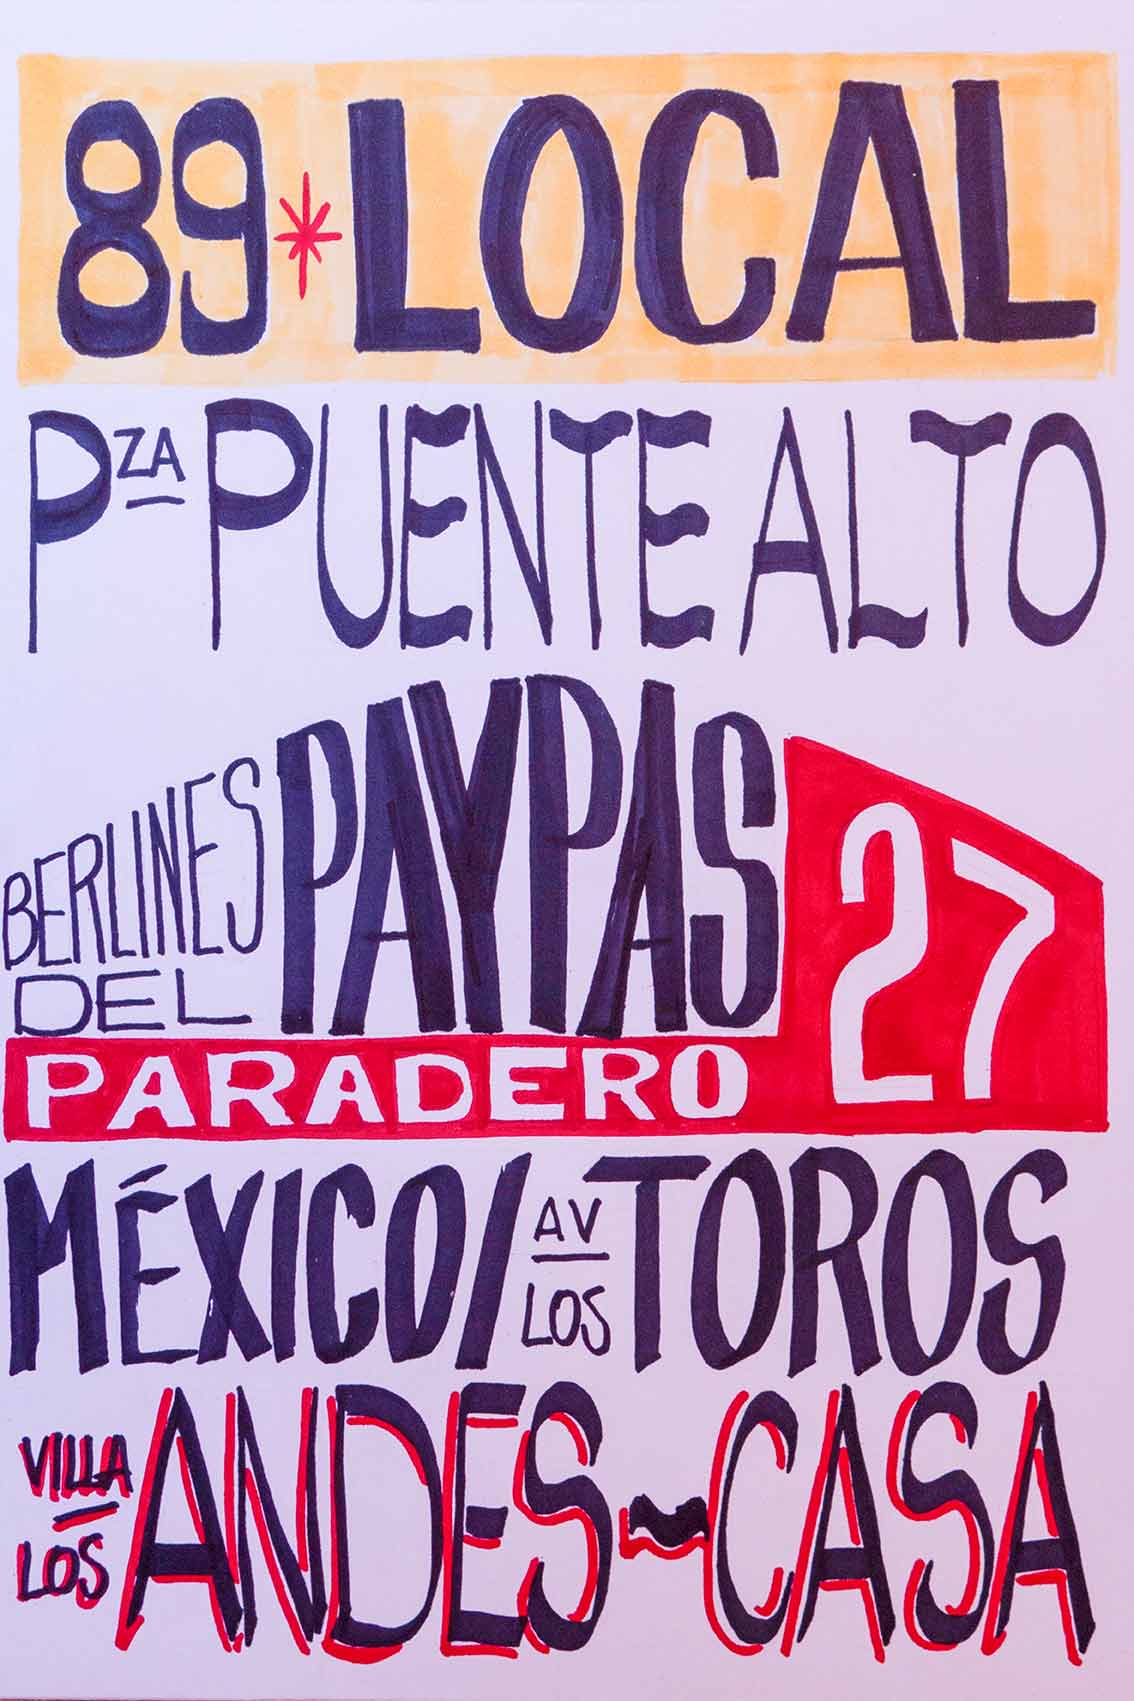 89*LOCAL
PZA PUENTE ALTO
BERLINES DEL PAYPAS
PARADERO 27
MÉXICO/AV LOS TOROS
VILLA LOS ANDES~CASA